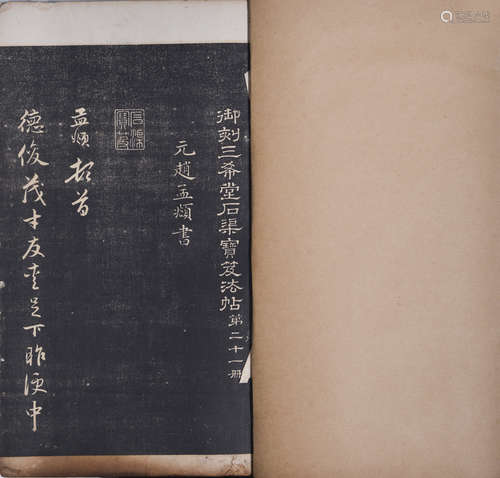 御刻三希堂石渠寶笈法帖第二十一冊
元趙孟頫書
孟頫頓首
德俊茂才友愛足下昨便中